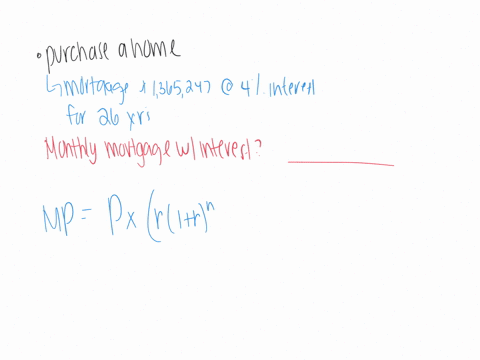 • purchase a home
↳ mortgage $1,365,247 @ 4% interest
for 26 yrs
Monthly mortgage w/ interest?
MP = P x (r(1+r)^n